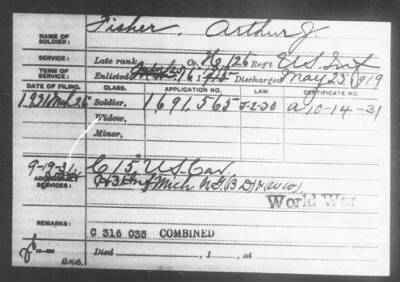 NAME OF SOLDIER: Fisher, Arthur J.
SERVICE: Late rank, Co. H, 126 Reg't U.S. Inf
TERM OF SERVICE: Enlisted 1915 Discharged May 25, 1919
DATE OF FILING. CLASS. APPLICATION NO. LAW. CERTIFICATE NO.
1931 Mch. 26 Soldier, 1,691,565 5-2-30 a 10-14-31
Widow,
Minor,
9-19-31 C 15" U.S. Cav.
ADDITIONAL SERVICES: Mich. N.G. (B D) (WW)
World War
REMARKS: C 316 035 COMBINED
Died, 1, at